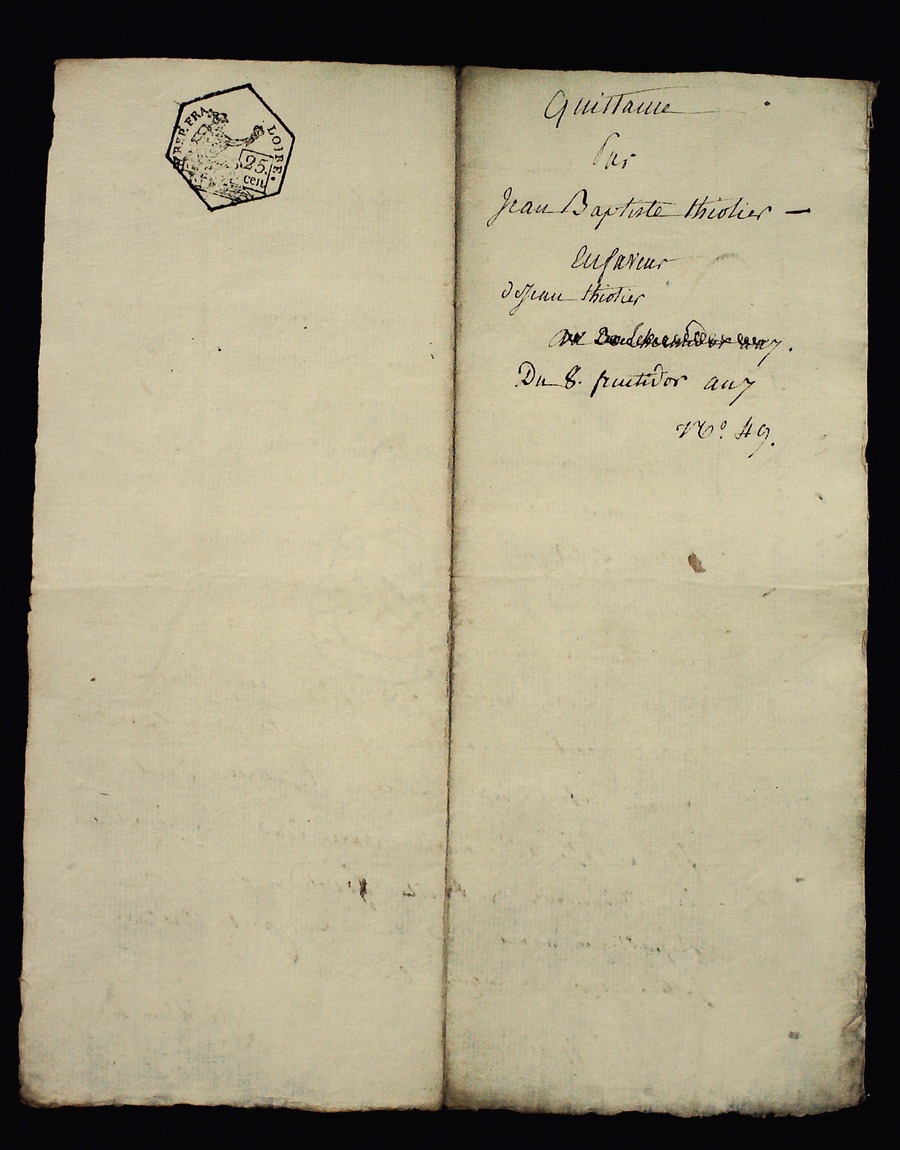 REP. FRA.
LOIRE.
25.
cen
Quittance
Par
Jean Baptiste thiolier —
En faveur
de Jean thiolier
an 7.
Du 8. fructidor an 7
No. 49.